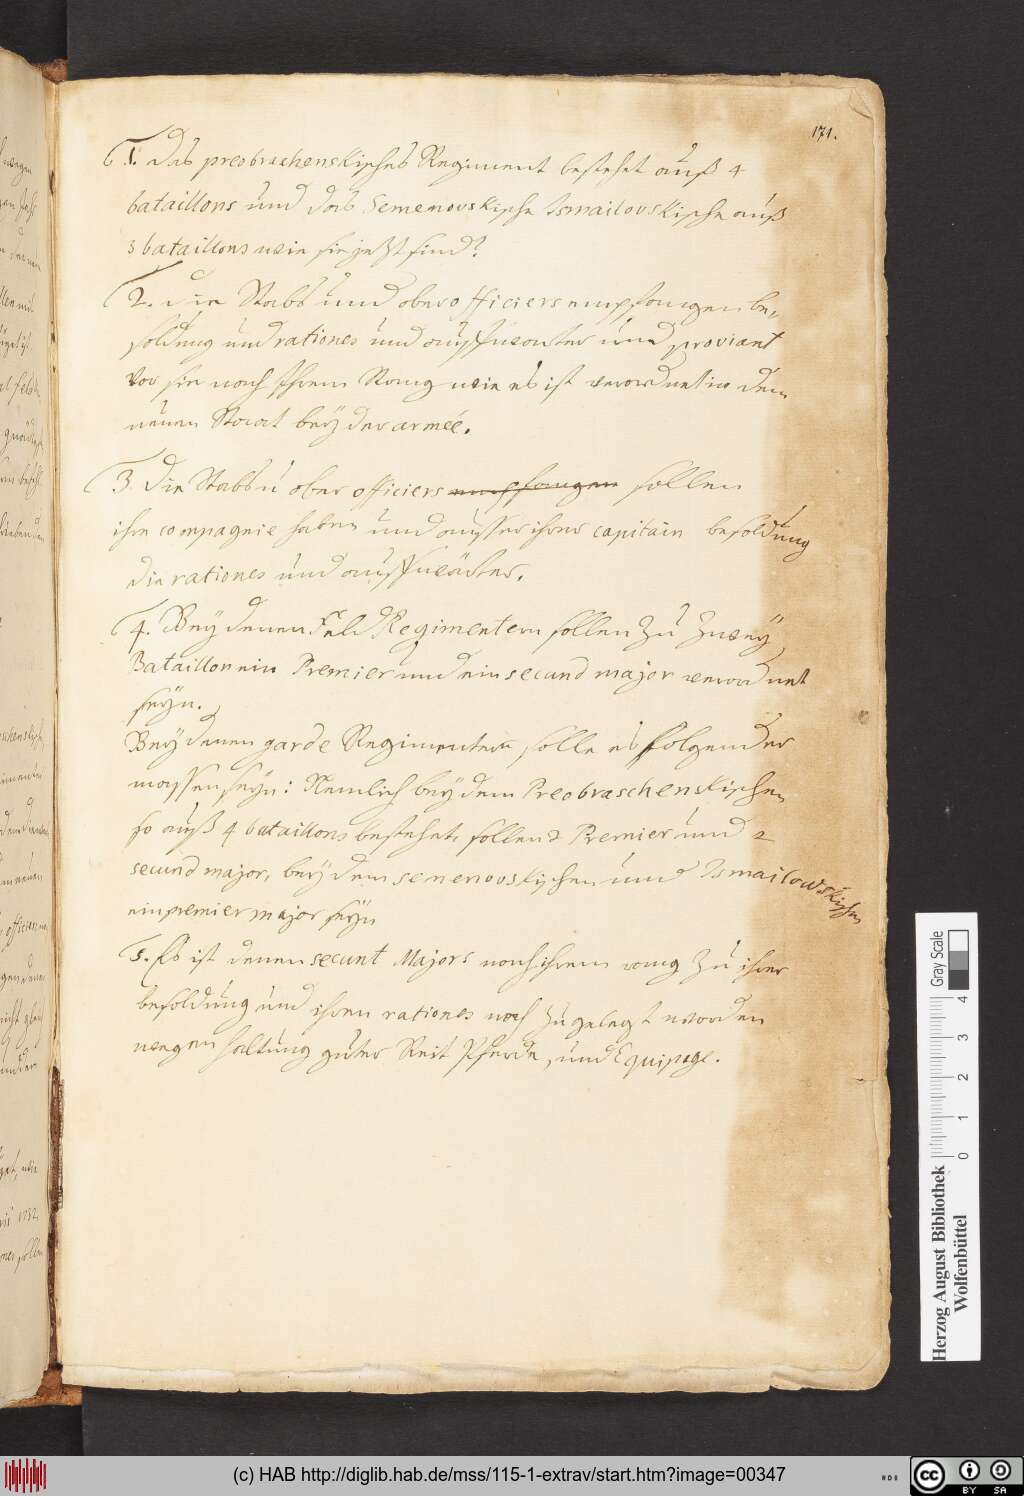 171.
1. Das preobraschenskische Regiment bestehet auß 4
bataillons und das Semenovskische Ismailovskische auß
3 bataillons wie sie jetzt sind?
2. die Stabs und ober officiers empfangen be-
soldung und rationes und auffwarter und proviant
vor sie nach Ihrem Rang wie es ist verordnet in dem
neuen Staat beÿ der armée.
3. Die Stabs u ober officiers empfangen sollen
ihre compagnie haben und ausser ihrer capitain besoldung
die rationes und auffwärter.
4. Beÿ denen Feld Regimentern sollen zu zweÿ
Bataillon ein Premier und ein secund major verordnet
seÿn.
Beÿ denen garde Regimentern solle es folgender
massen seÿn: Nemlich beÿ dem Preobraschenskischen
so auß 4 bataillons bestehet, sollen 2 Premier und 2
secund major, beÿ dem semenovskischen und Ismailowskischen
ein premier major seÿn
5. Es ist denen secunt Majors nach ihrem rang zu ihrer
besoldung und ihren rationes noch zugelegt worden
wegen haltung guter Reit Pferde, und Equipage.
Herzog August Bibliothek
Wolfenbüttel
Gray Scale
0 1 2 3 4
(c) HAB http://diglib.hab.de/mss/115-1-extrav/start.htm?image=00347
cc BY SA